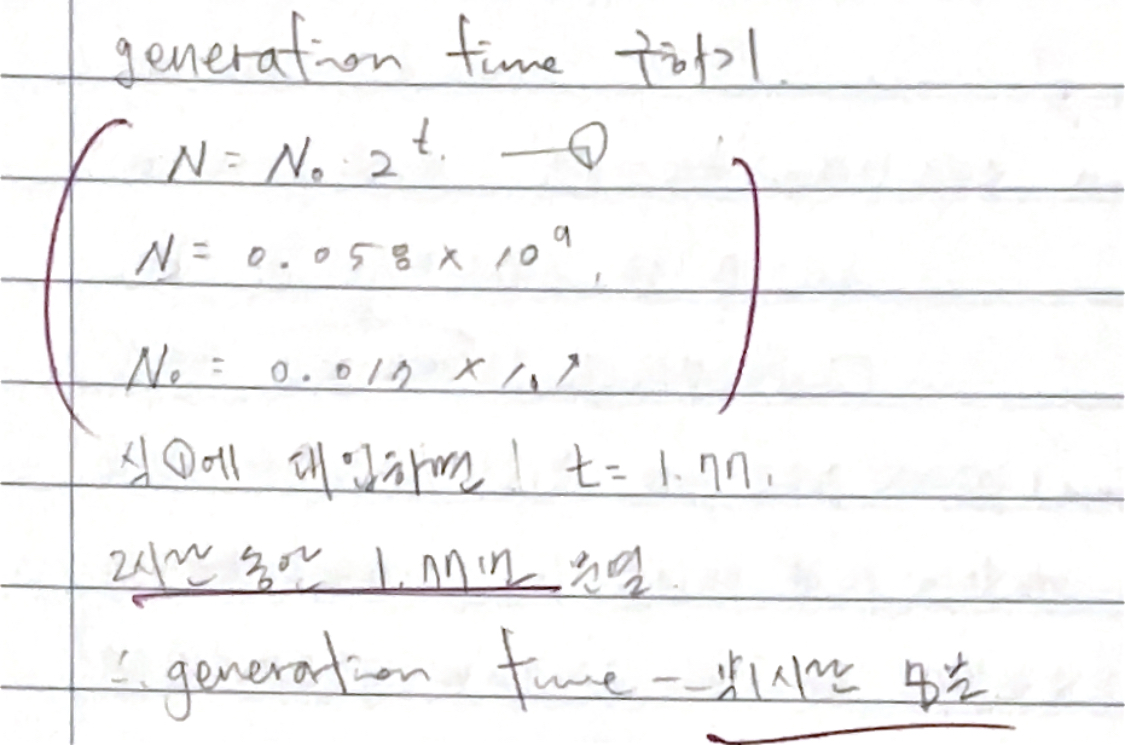 generation time 구하기.
N = N₀ 2ᵗ. —①
N = 0.058 × 10⁹.
N₀ = 0.017 ×
식①에 대입하면, t = 1.77.
2시간 동안 1.77번 분열.
∴ generation time -- 약 1시간 분